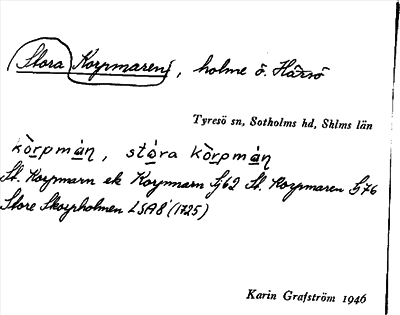 Stora Korpmaren, holme ö. Hårsö
Tyresö sn, Sotholms hd, Shlms län
kòrpmán, stóra kòrpmán
St. Korpmarn ek Korpmarn Sj62 St. Korpmaren S76
Store Skorpholmen LSA8 (1725)
Karin Grafström 1946